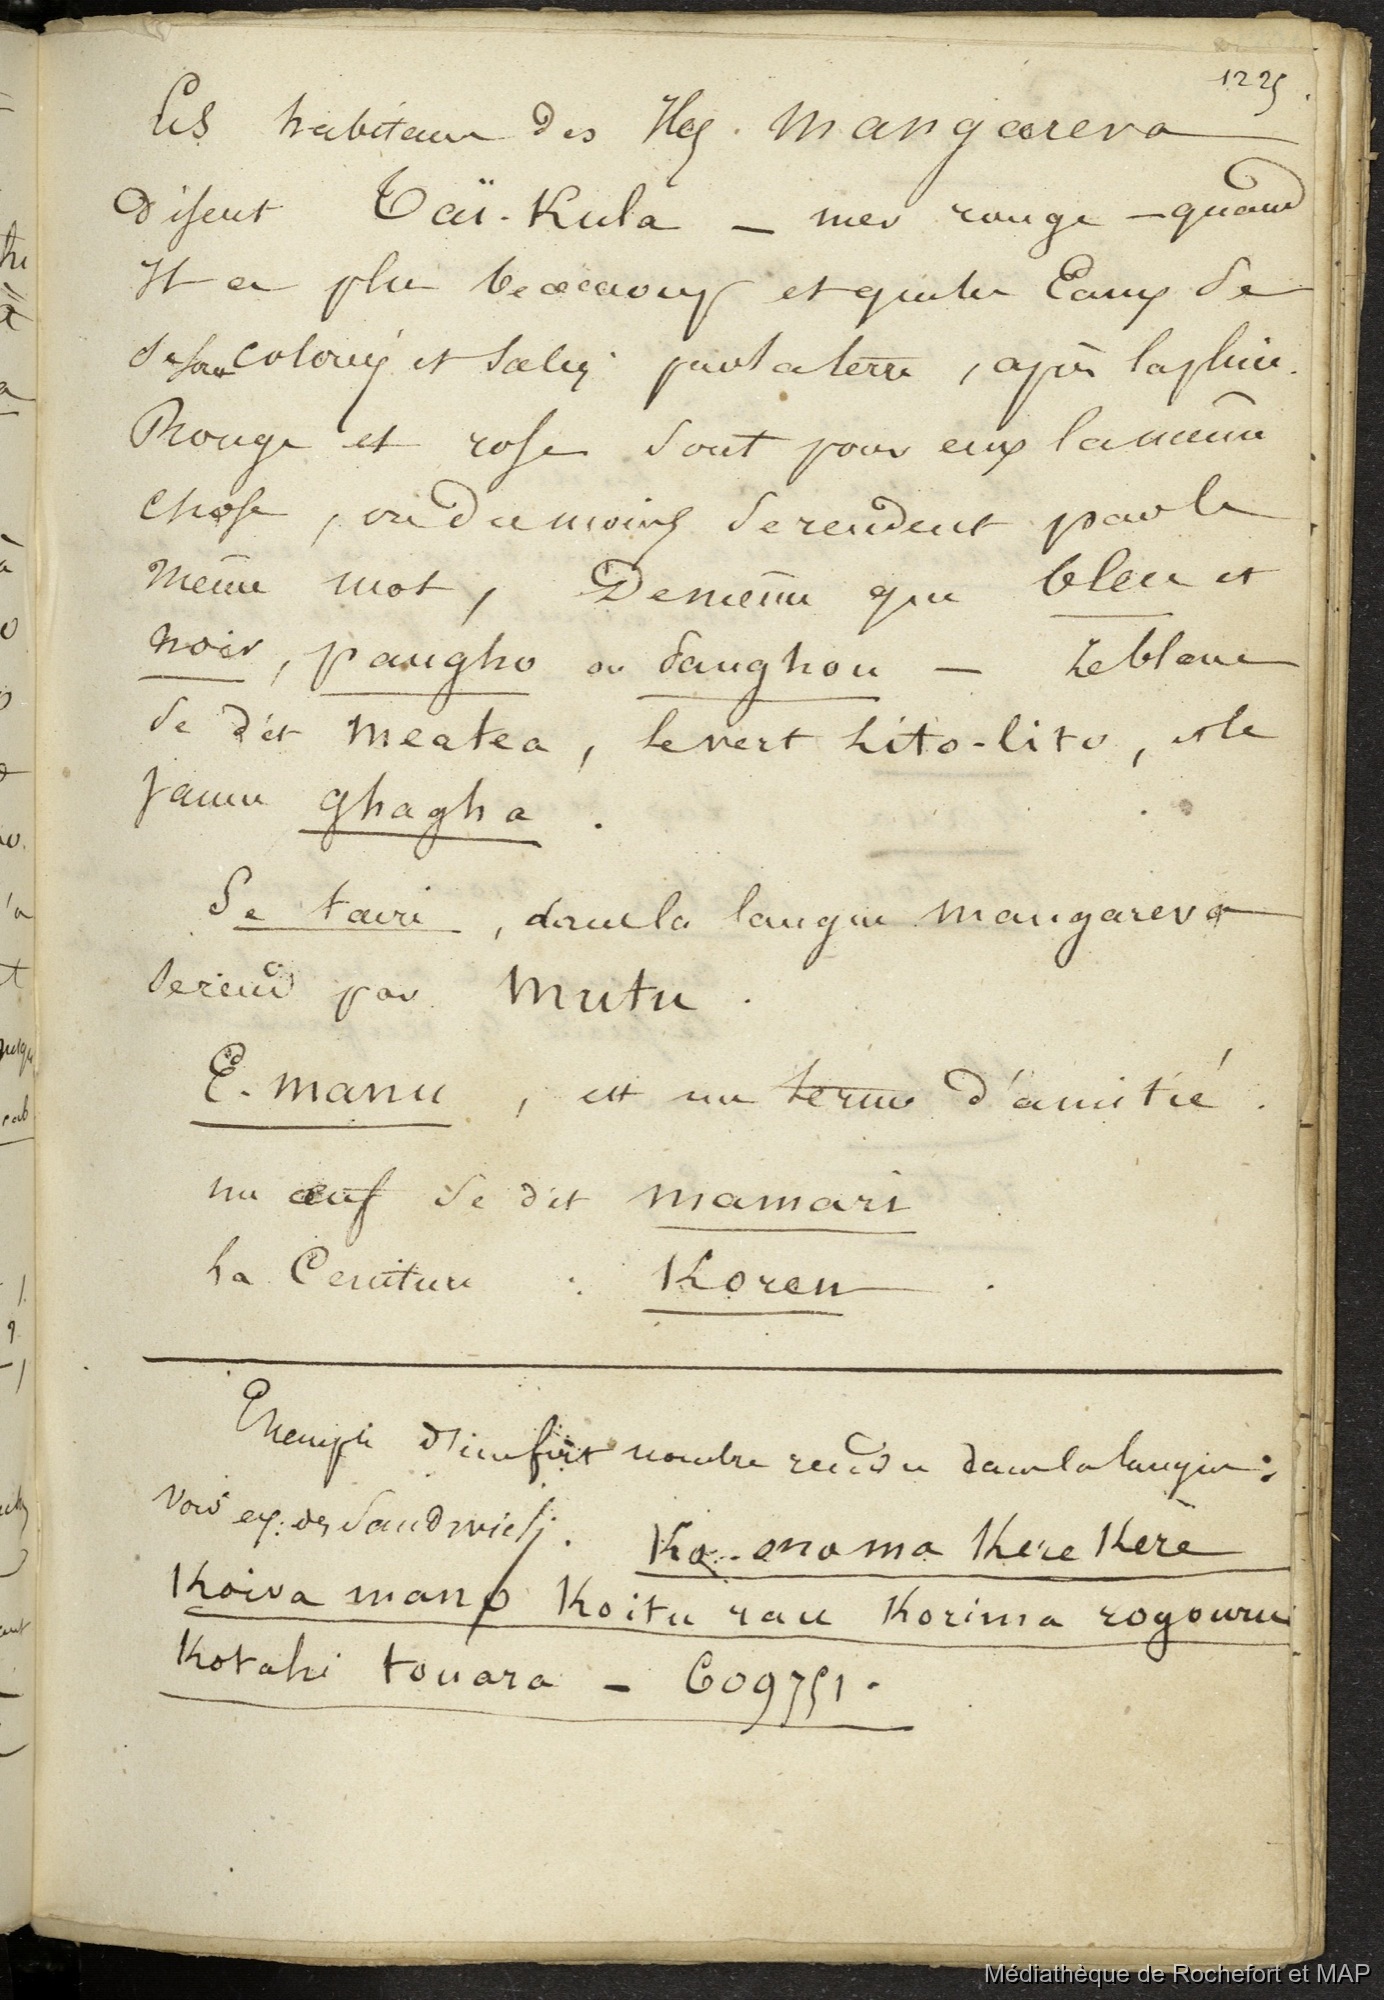 1225.
Les habitans des Iles Mangareva
disent Taï-Kula — mer rouge — quand
Il a plu beaucoup et que les Eaux se
se sont colorées et salies par la terre, après la pluie.
Rouge et rose sont pour eux la même
chose, ou du moins se rendent par le
même mot, De même que bleu et
noir, pangho ou sanghou — Le blanc
se dit meatea, le vert lito-lito, et le
jaune ghagha.
Se taire, dans la langue mangareva
se rend par mutu.
E. manu, est un terme d'amitié.
un œuf se dit mamari
La Ceinture : Koren .
Exemple d'un fort nombre rendu dans la langue :
Voir ex: des Sandwich. Ko-onoma Kere Kere
Koiva mano Koitu rau Korima rogourui
Kotahi touara — 609751.
Médiathèque de Rochefort et MAP